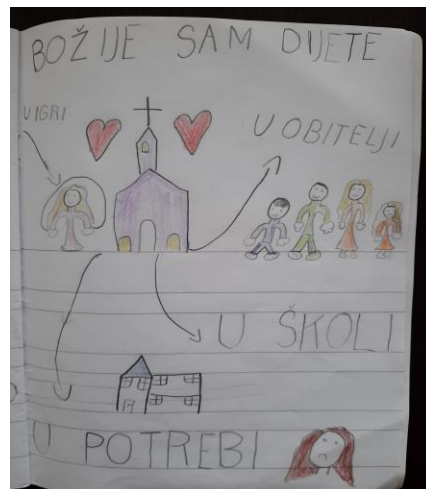 BOŽIJE SAM DIJETE
U IGRI
U OBITELJI
U ŠKOLI
U POTREBI